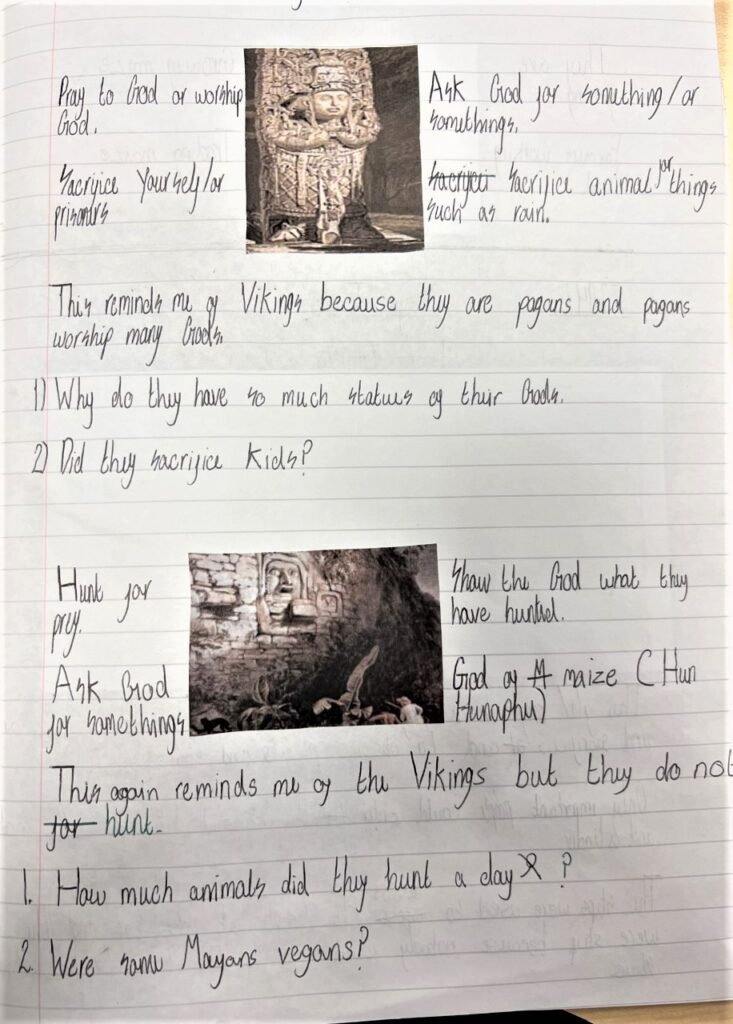 Pray to God or worship
God.
Sacrifice Yourself/or
prisoners
Ask God for something/or
somethings.
sacrifice animal for things
such as rain.
This reminds me of Vikings because they are pagans and pagans
worship many Gods.
1) Why do they have so much statues of their Gods.
2) Did they sacrifice kids?
Hunt for
prey.
Ask God
for somethings
Show the God what they
have hunted.
God of maize (Hun
Hunaphu)
This again reminds me of the Vikings but they do not
for hunt.
1. How much animals did they hunt a day?
2. Were some Mayans vegans?